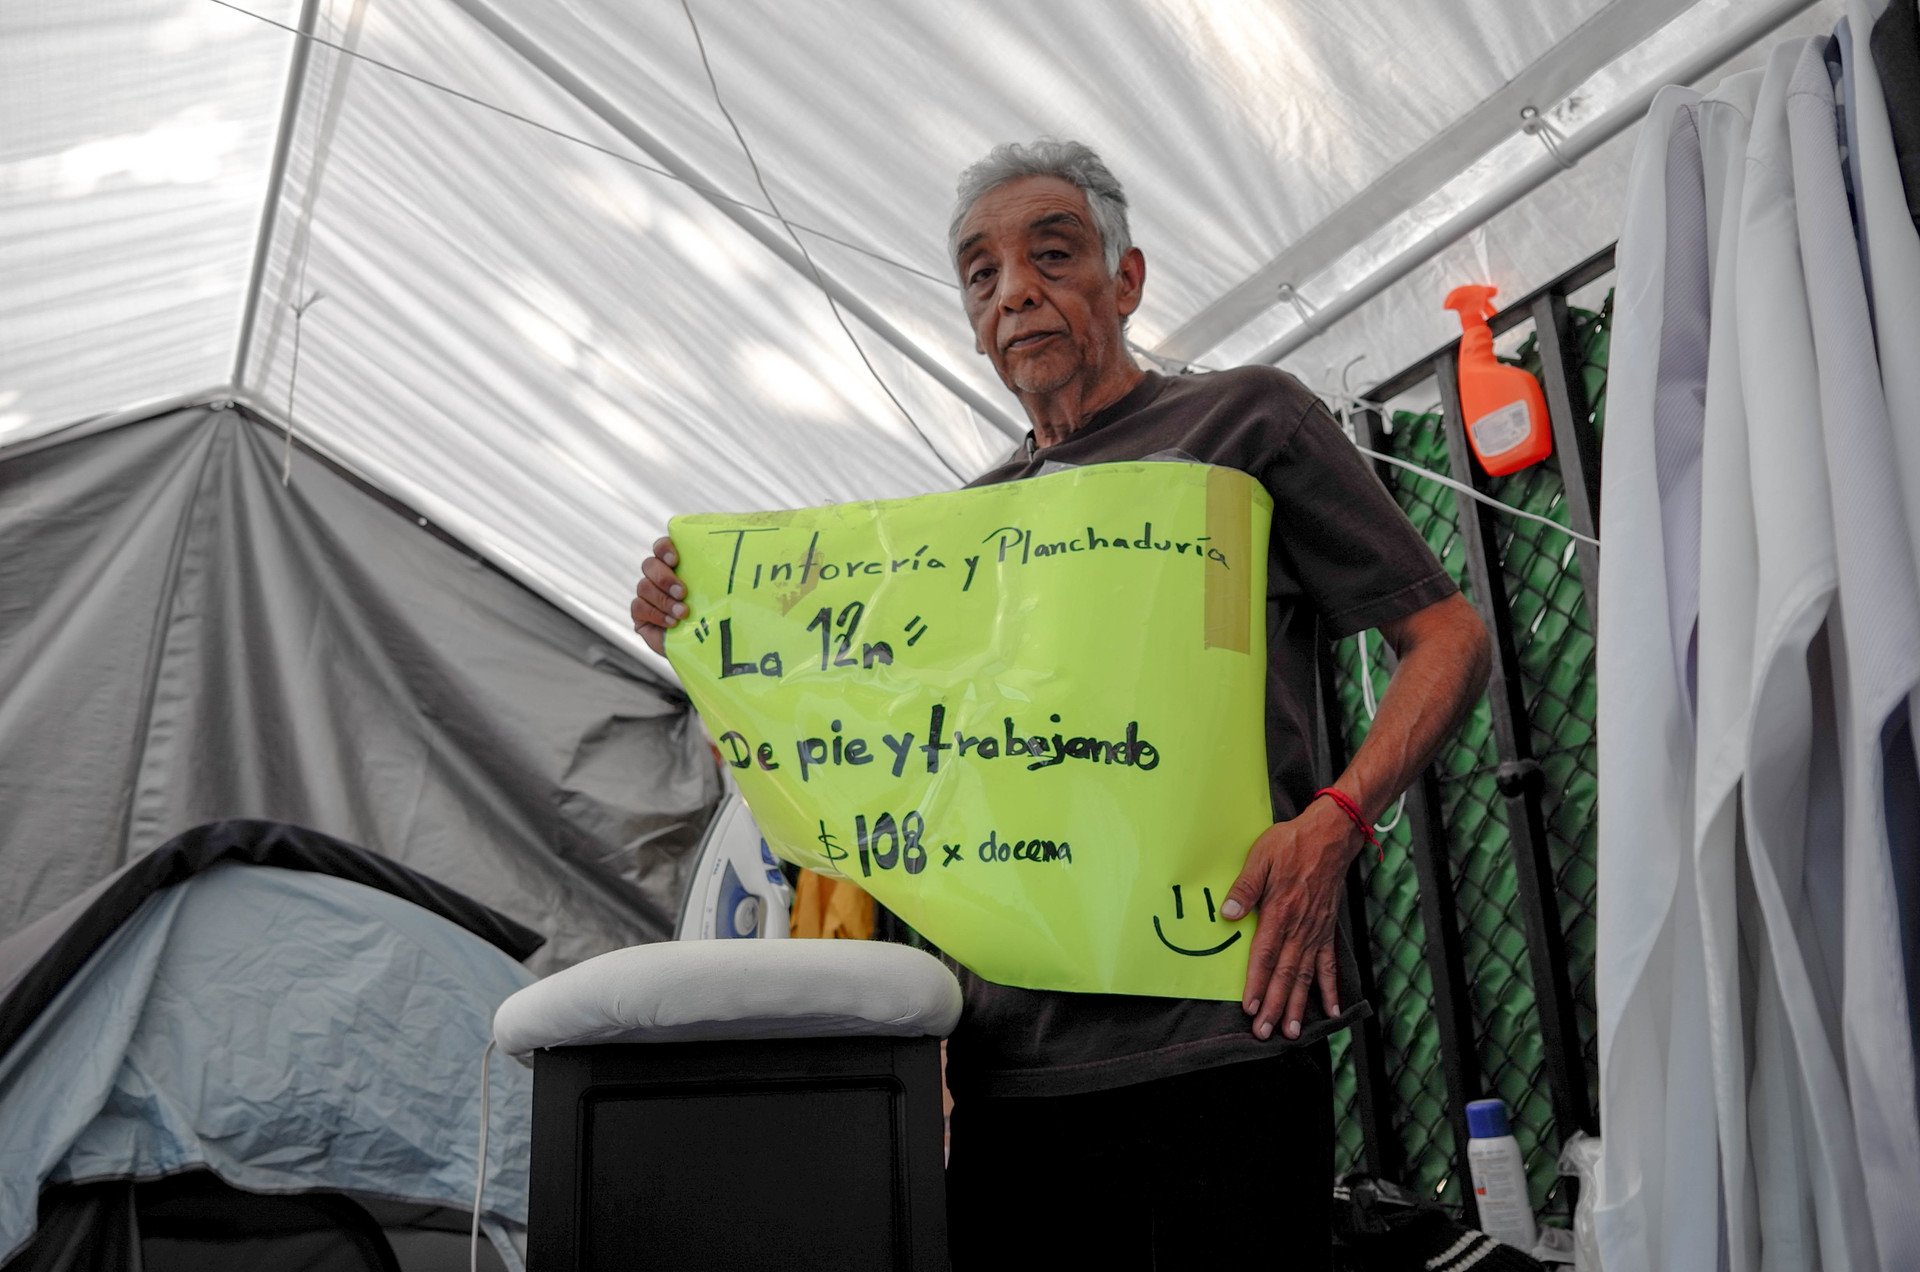 Tintorería y Planchaduría
"La 12n"
De pie y trabajando
$108 x docena